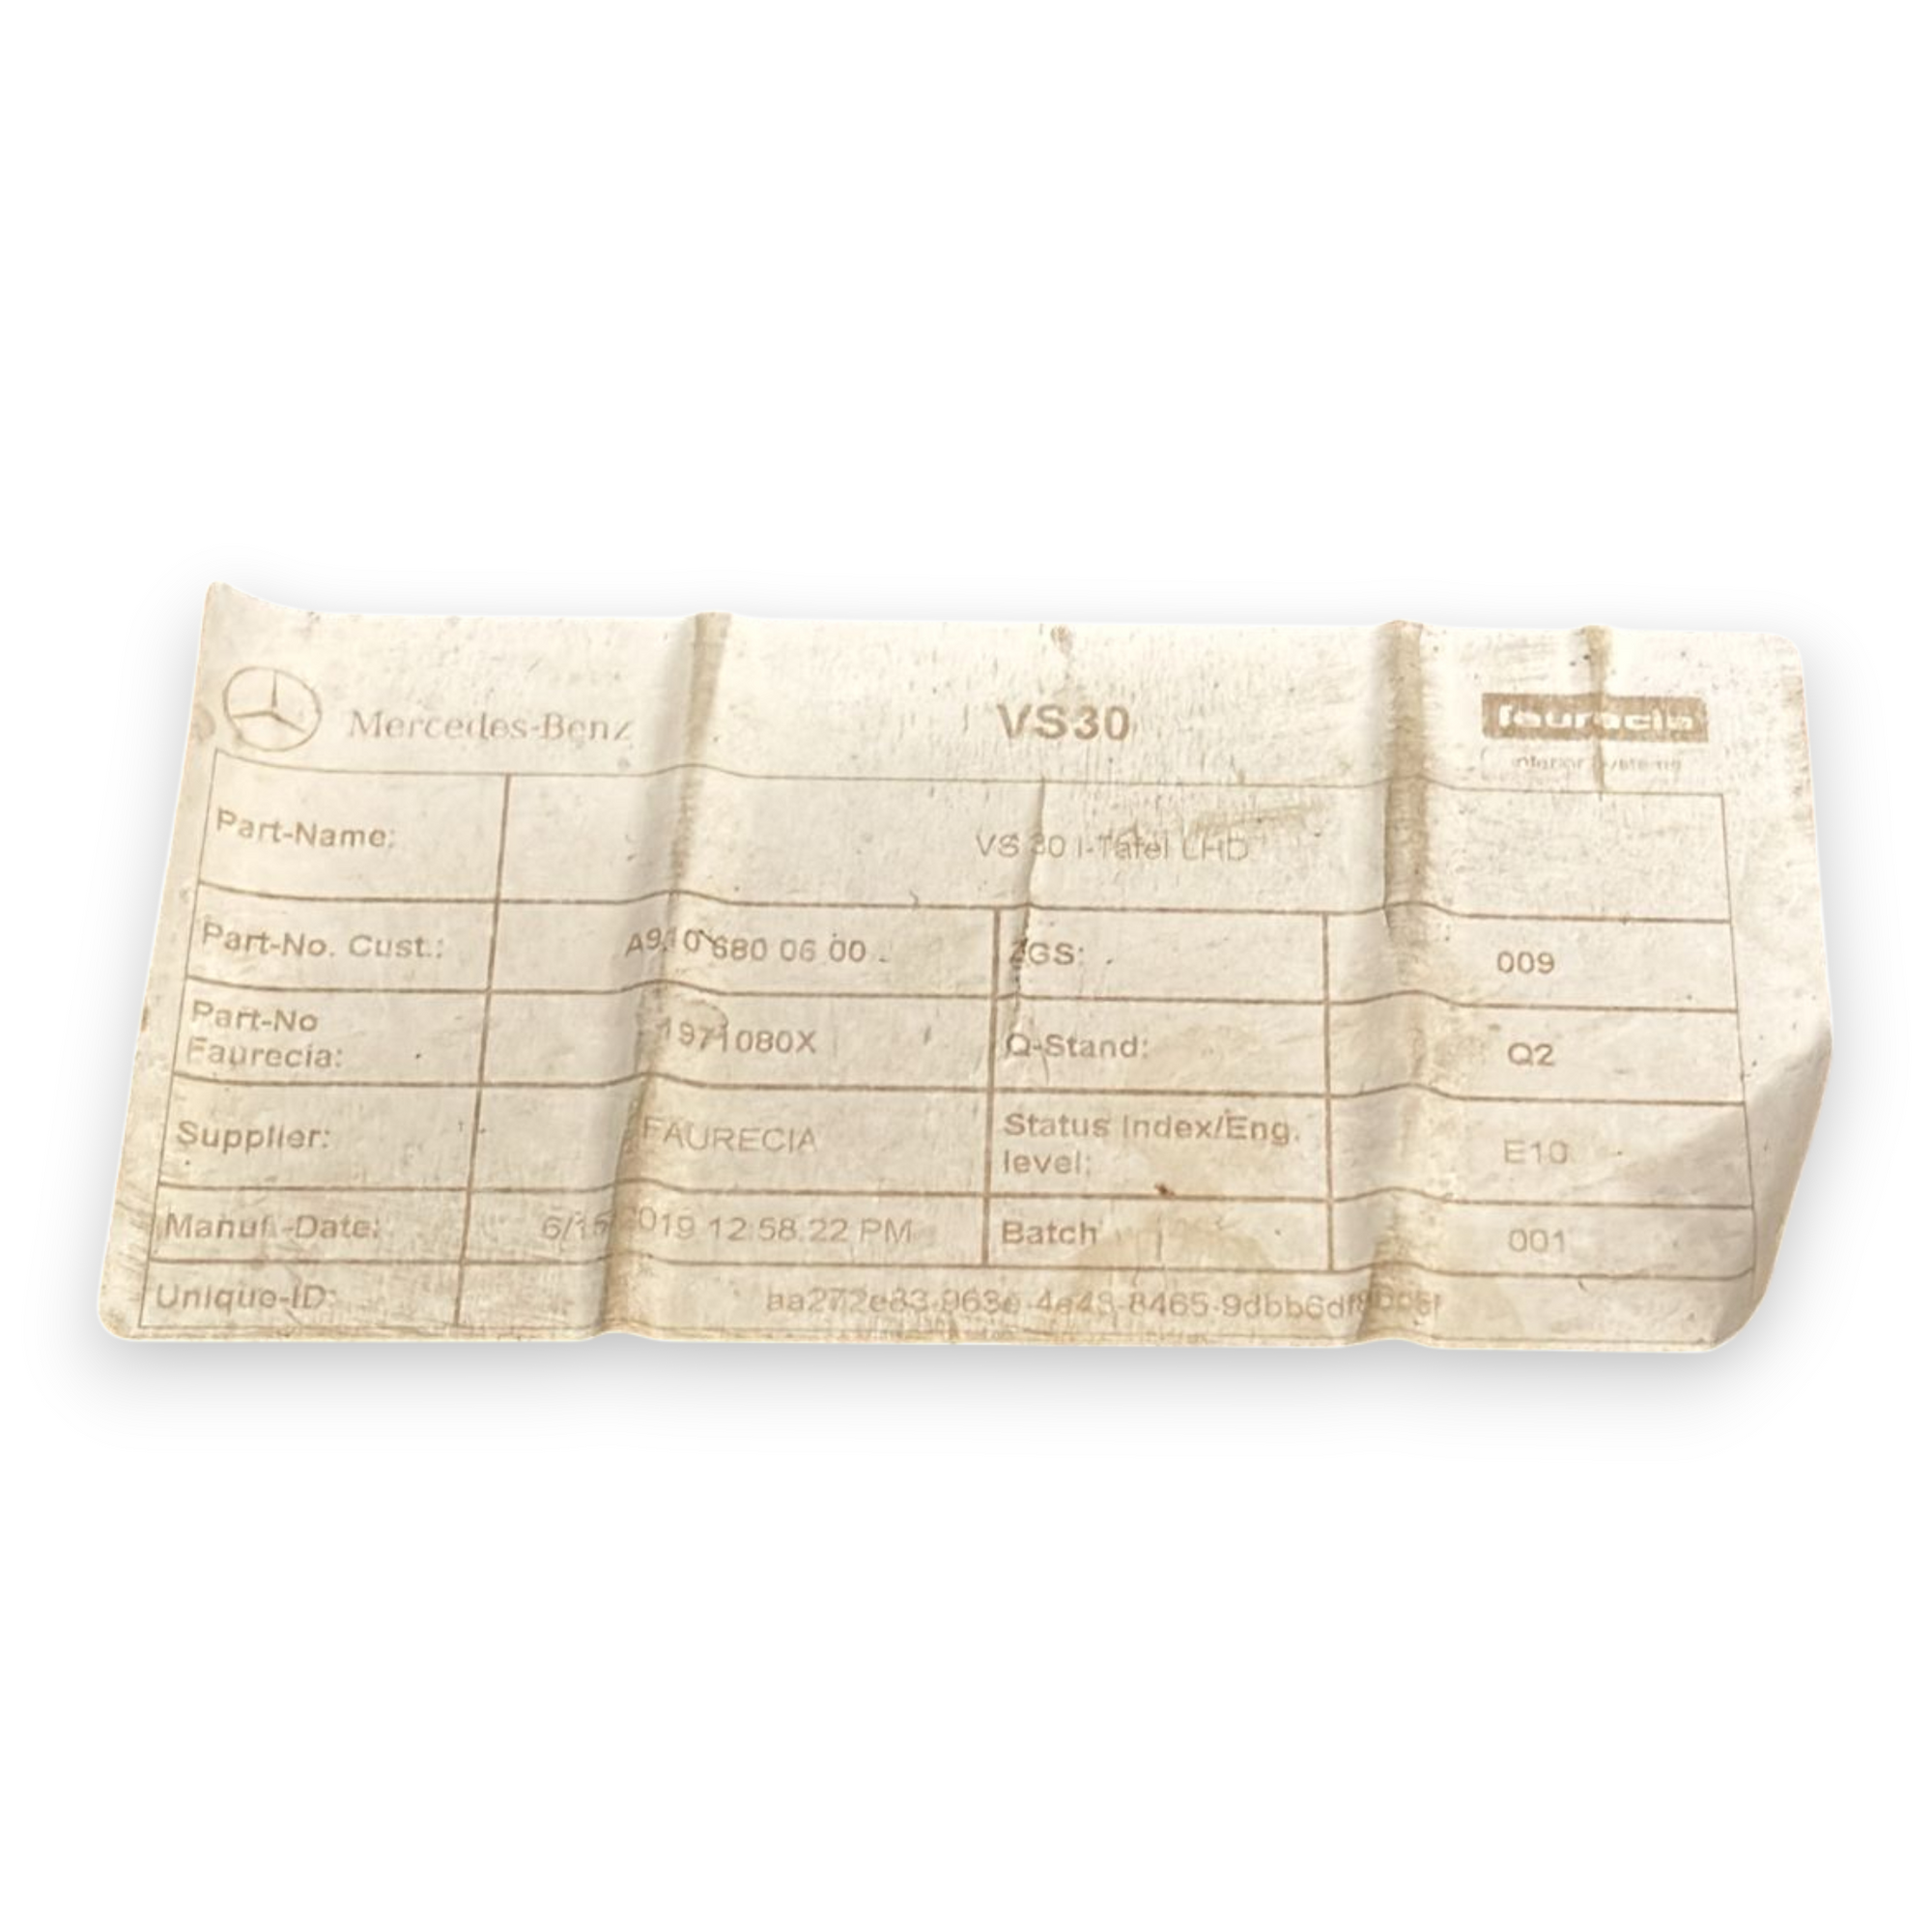 Mercedes-Benz
VS30
faurecia
interior systems
Part-Name: VS 30 I-Tafel LHD
Part-No. Cust.: A910 680 06 00 ZGS: 009
Part-No
Faurecia: 1971080X Q-Stand: Q2
Supplier: FAURECIA Status Index/Eng.
level: E10
Manuf.-Date: 12:58:22 PM Batch 001
Unique-ID: